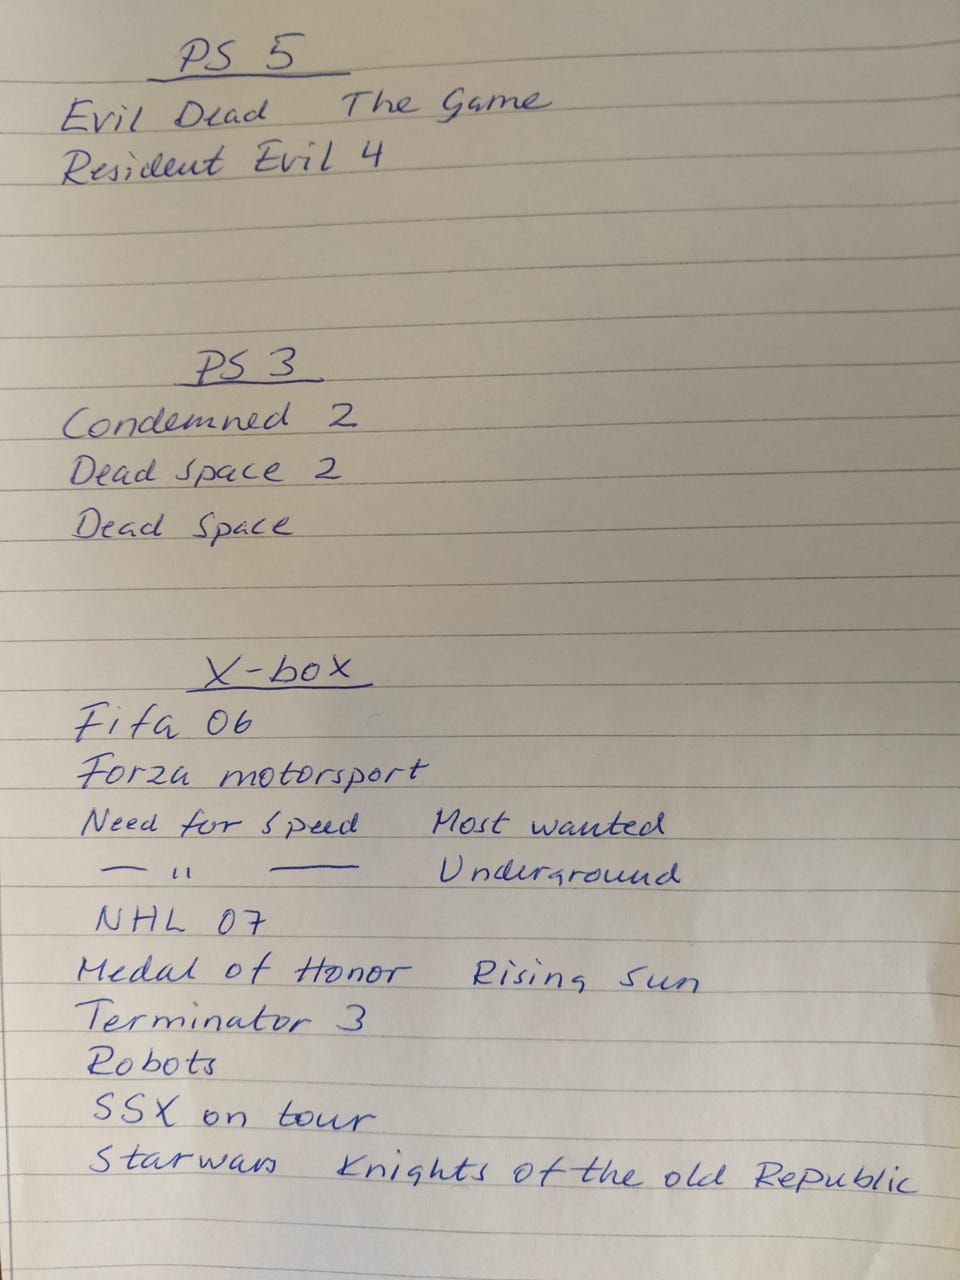 PS 5
Evil Dead The Game
Resident Evil 4
PS 3
Condemned 2
Dead Space 2
Dead Space
X-box
Fifa 06
Forza motorsport
Need for Speed Most wanted
— " — Underground
NHL 07
Medal of Honor Rising Sun
Terminator 3
Robots
SSX on tour
Starwars Knights of the old Republic